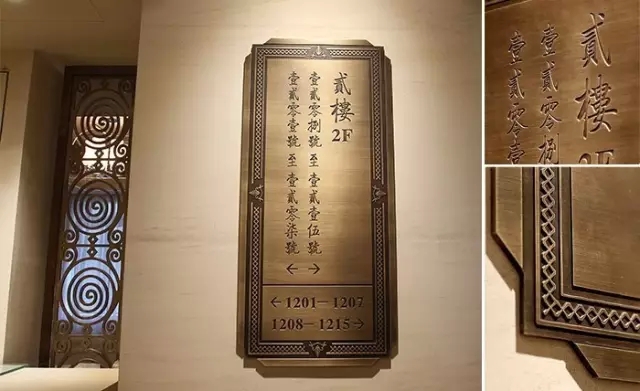 貳樓
2F
壹貳零捌號至壹貳壹伍號
壹貳零壹號至壹貳零柒號
← →
←1201—1207
1208—1215→
貳樓
2F
壹貳零捌
壹貳零壹